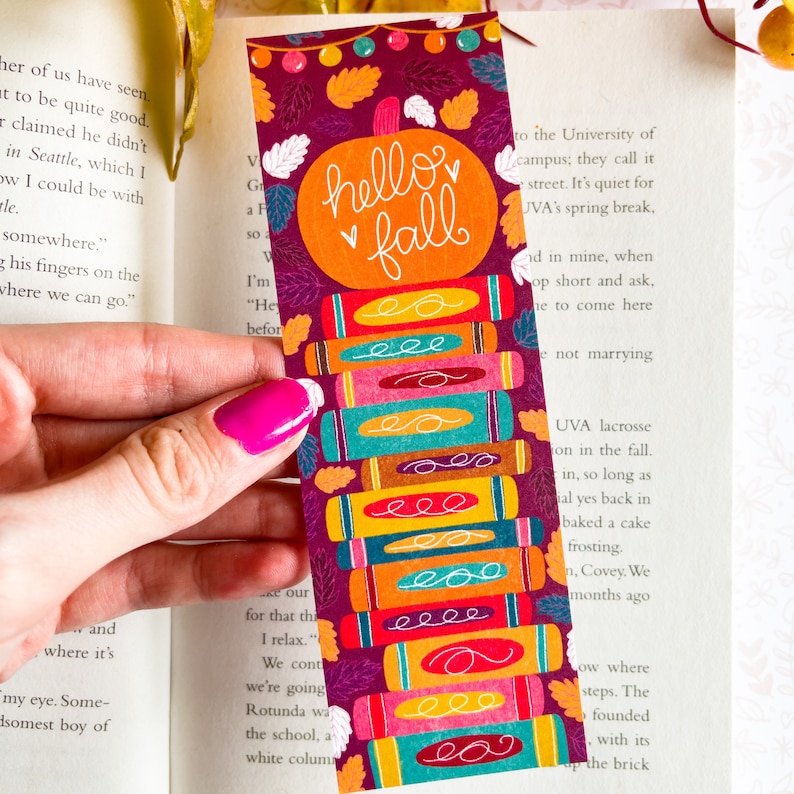 her of us have seen.
t to be quite good.
r claimed he didn't
in Seattle, which I
ow I could be with
tle.
somewhere."
ng his fingers on the
where we can go."
and
where it's
my eye. Some-
dsomest boy of
hello
fall
to the University of
campus; they call it
street. It's quiet for
a F UVA's spring break,
so a
W nd in mine, when
I'm op short and ask,
"Hey me to come here
before
not marrying
UVA lacrosse
on in the fall.
in, so long as
ial yes back in
baked a cake
frosting.
n, Covey. We
ake our months ago
for that thi
I relax."
We cont now where
we're going steps. The
Rotunda wa founded
the school, a , with its
white colum up the brick